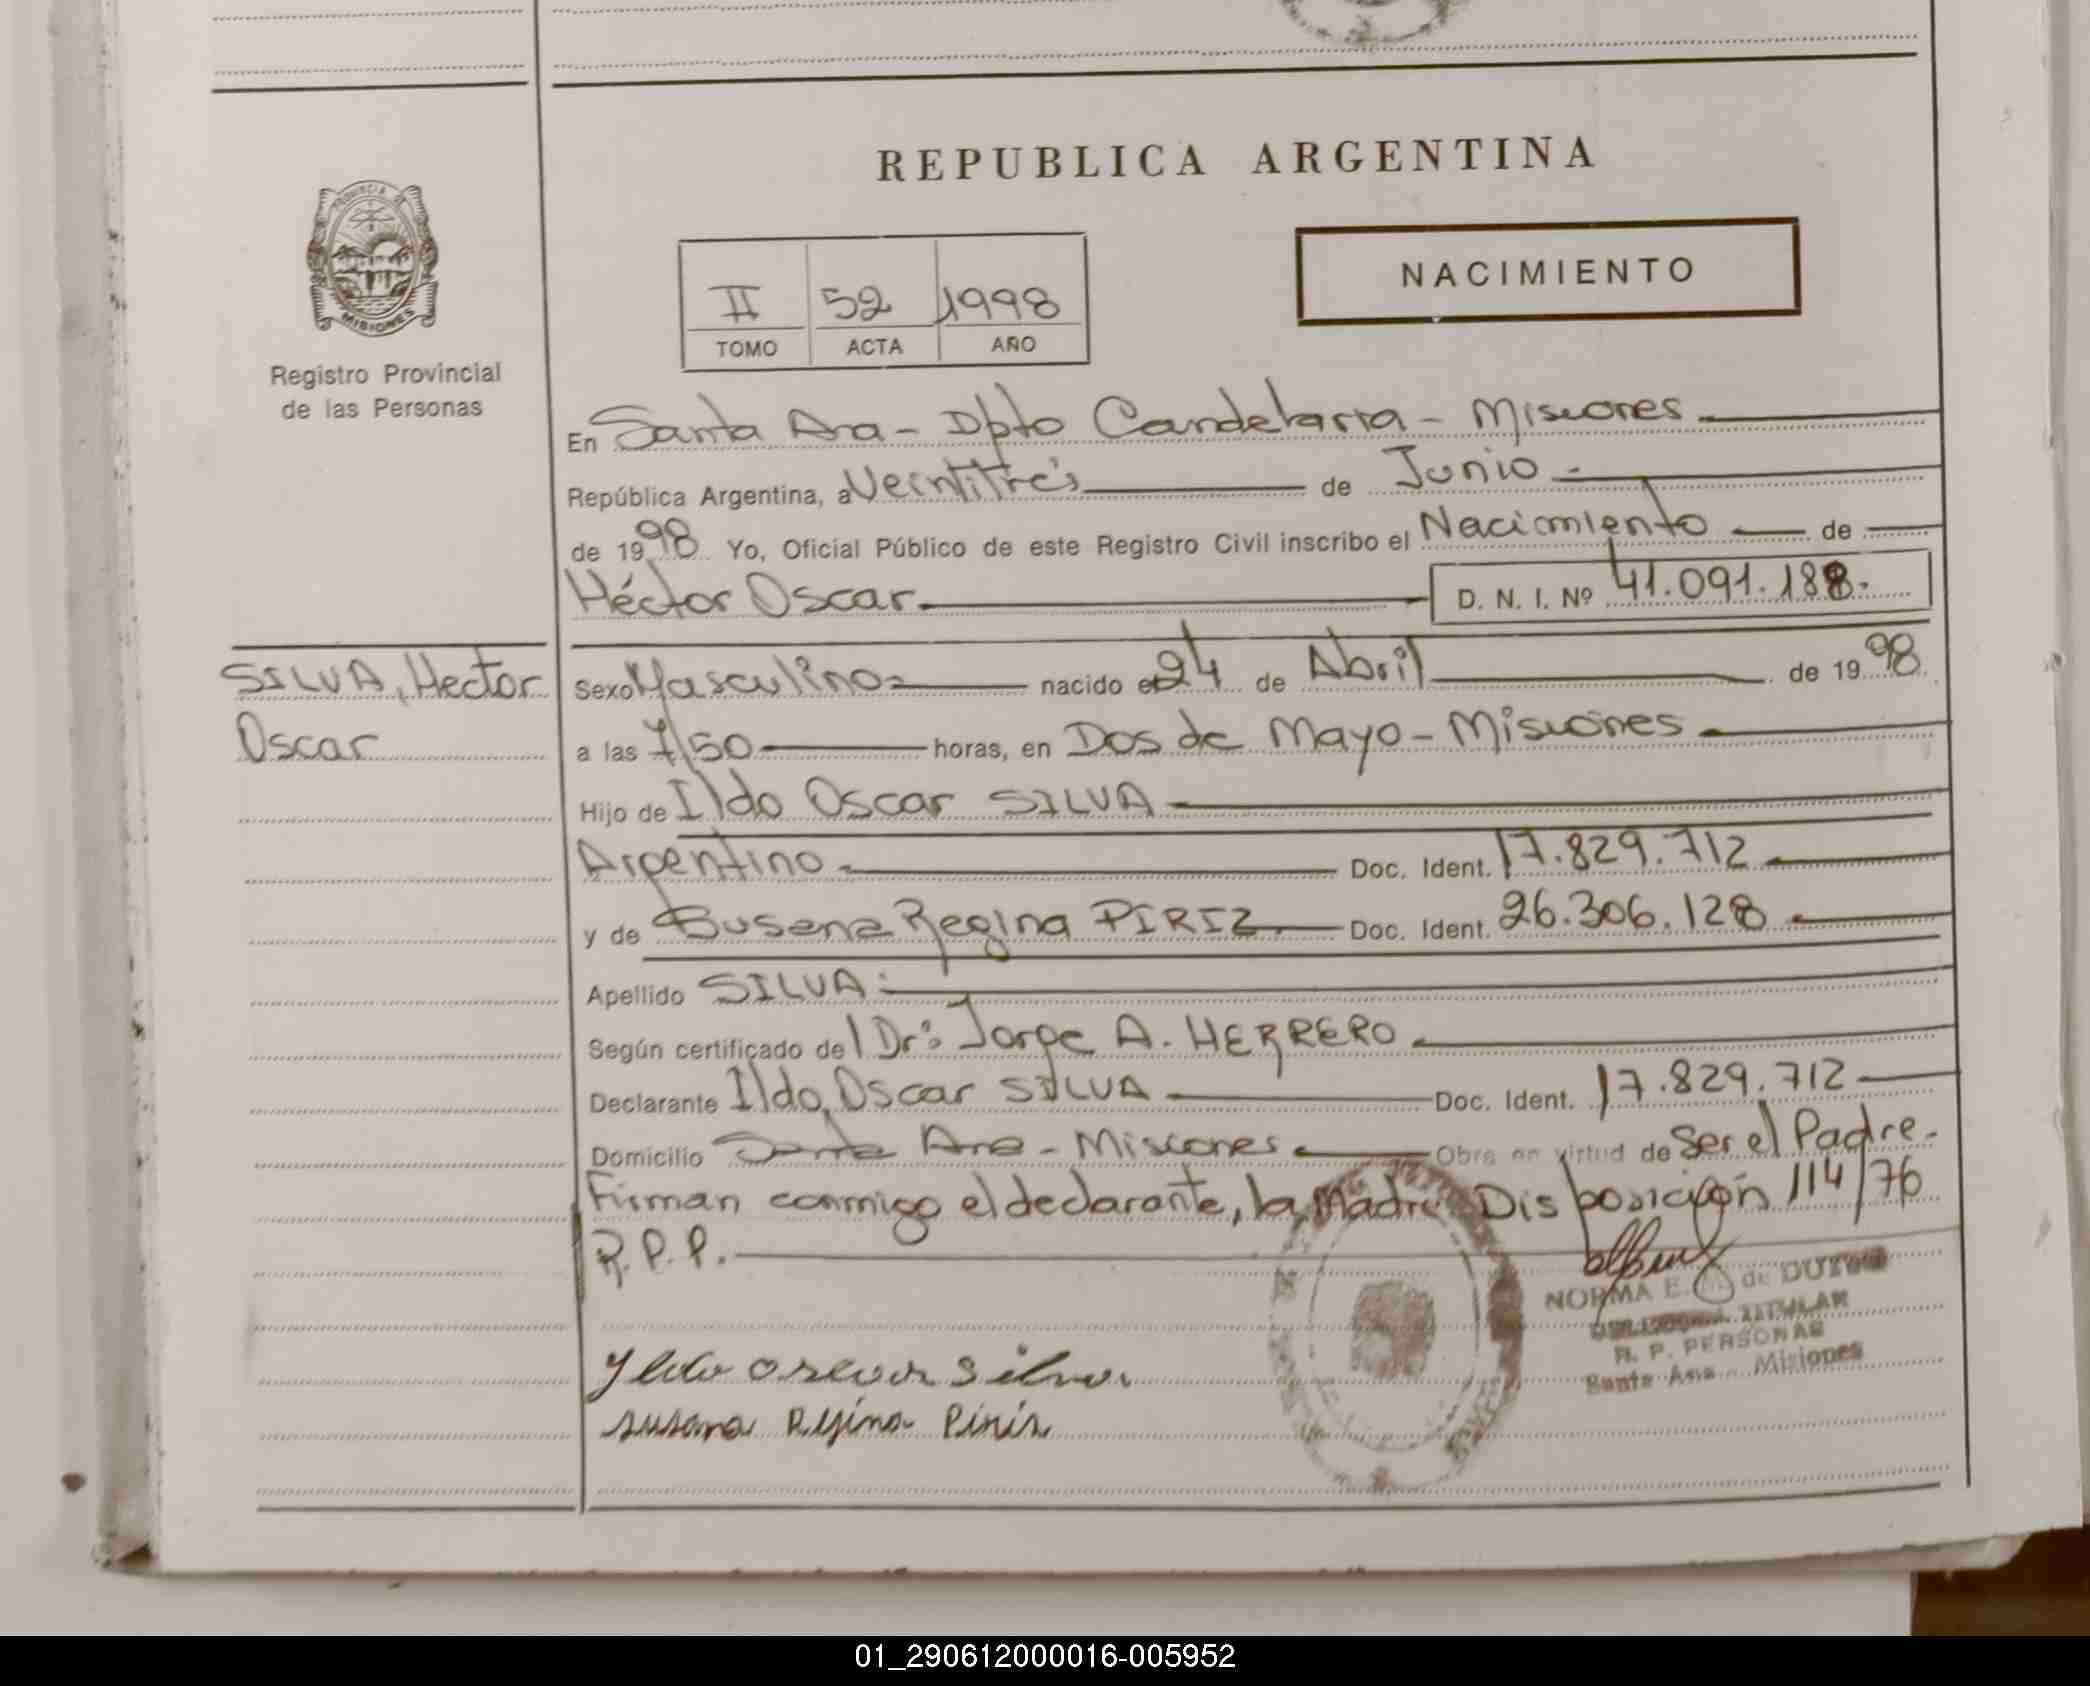 REPUBLICA ARGENTINA
PROVINCIA DE
MISIONES
Registro Provincial
de las Personas
NACIMIENTO
II 52 1998
TOMO ACTA AÑO
En Santa Ana - Dpto Candelaria - Misiones
República Argentina, a Veintitrés de Junio
de 1998 Yo, Oficial Público de este Registro Civil inscribo el Nacimiento de
Héctor Oscar D. N. I. Nº 41.091.188.
SILVA, Hector
Oscar
Sexo Masculino nacido el 24 de Abril de 1998
a las 7/50 horas, en Dos de Mayo - Misiones
Hijo de Ildo Oscar SILVA
Argentino Doc. Ident. 17.829.712
y de Susana Regina PIRIZ Doc. Ident. 26.306.128
Apellido SILVA
Según certificado del Dr: Jorge A. HERRERO
Declarante Ildo Oscar SILVA Doc. Ident. 17.829.712
Domicilio Santa Ana - Misiones Obra en virtud de Ser el Padre.
Firman conmigo el declarante, la Madre Disposición 114/76
R.P.P.
NORMA E. de
TITULAR
R. P. PERSONAS
Santa Ana Misiones
Yldo oscar silva
susana Regina Piriz
01_290612000016-005952